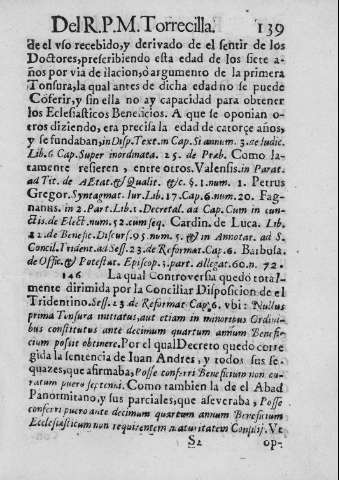 Del R.P.M. Torrecilla. 139
de el vso recebido, y derivado de el sentir de los
Doctores, prescribiendo esta edad de los siete a-
ños por via de ilacion, ò argumento de la primera
Tonsura, la qual antes de dicha edad no se puede
Cõferir, y sin ella no ay capacidad para obtener
los Eclesiasticos Beneficios. A que se oponian o-
tros diziendo, era precisa la edad de catorçe años,
y se fundaban, in Disp. Text. in Cap. Si annum. 3. de Iudic.
Lib. 6 Cap. Super inordinata. 25. de Præb. Como la-
tamente resieren, entre otros. Valensis. in Parat.
ad Tit. de AEtat. & Qualit. &c. §. 1. num. 1. Petrus
Gregor. Syntagmat. Iur. Lib. 17. Cap. 6. num. 20. Fag-
nanus. in 2. Part. Lib. 1. Decretal. ad Cap. Cum in cun-
ctis. de Elect. num. 52. cum seq. Cardin. de Luca. Lib.
12. de Benefic. Discurs. 95. num. 5. & in Annotat. ad S.
Concil. Trident. ad Sess. 23. de Reformat. Cap. 6. Barbosa.
de Offic. & Potestat. Episcop. 3. part. Allegat. 60. n. 72.
146 La qual Controversia quedò total-
mente dirimida por la Conciliar Disposicion de el
Tridentino. Sess. 23 de Reformat Cap. 6. vbi: Nullus
prima Tonsura initiatus, aut etiam in minoribus Ordini-
bus constitutus ante decimum quartum annum Benefi-
cium possit obtinere. Por el qual Decreto quedo corre
gida la sentencia de Iuan Andres, y todos sus se-
quazes, que afirmaba, Posse conferri Beneficium non cu-
ratum puero septenni. Como tambien la de el Abad
Panormitano, y sus parciales, que aseveraba, Posse
conferri puero ante decimum quartum annum Beneficium
Ecclesiasticum non requirentem maturitatem Consilij. Vt
S2 op-